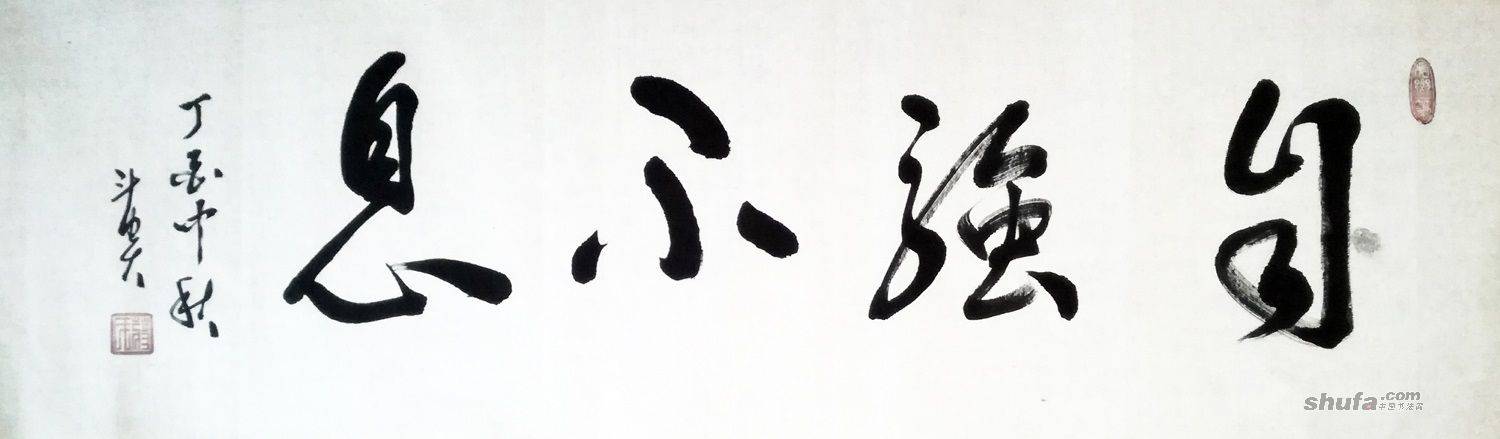 自強不息
丁酉中秋
斗
shufa.com
中国书法网